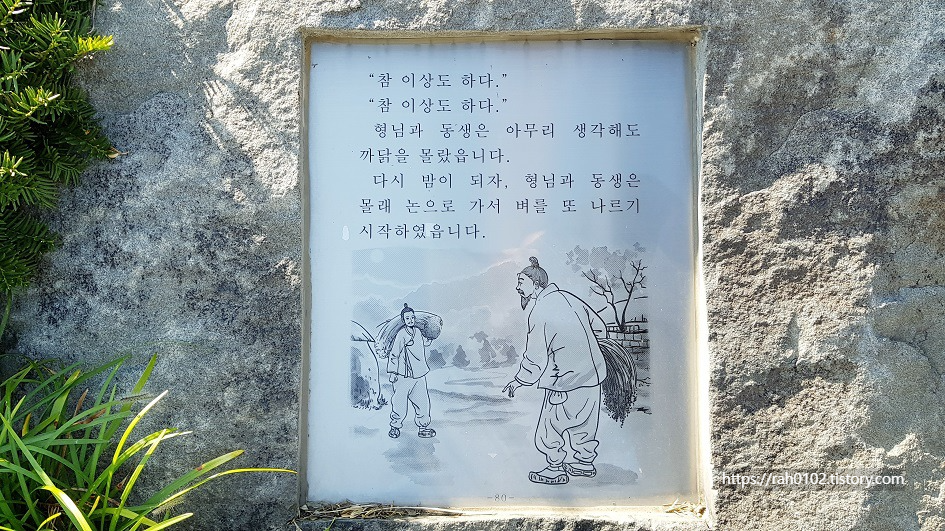 “참 이상도 하다.”
“참 이상도 하다.”
형님과 동생은 아무리 생각해도
까닭을 몰랐읍니다.
다시 밤이 되자, 형님과 동생은
몰래 논으로 가서 벼를 또 나르기
시작하였읍니다.
-80-
https://rah0102.tistory.com